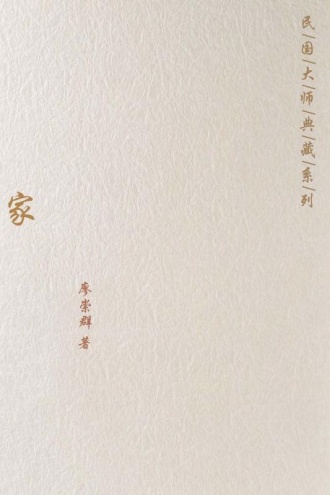 民国大师典藏系列
家
廖崇群 著